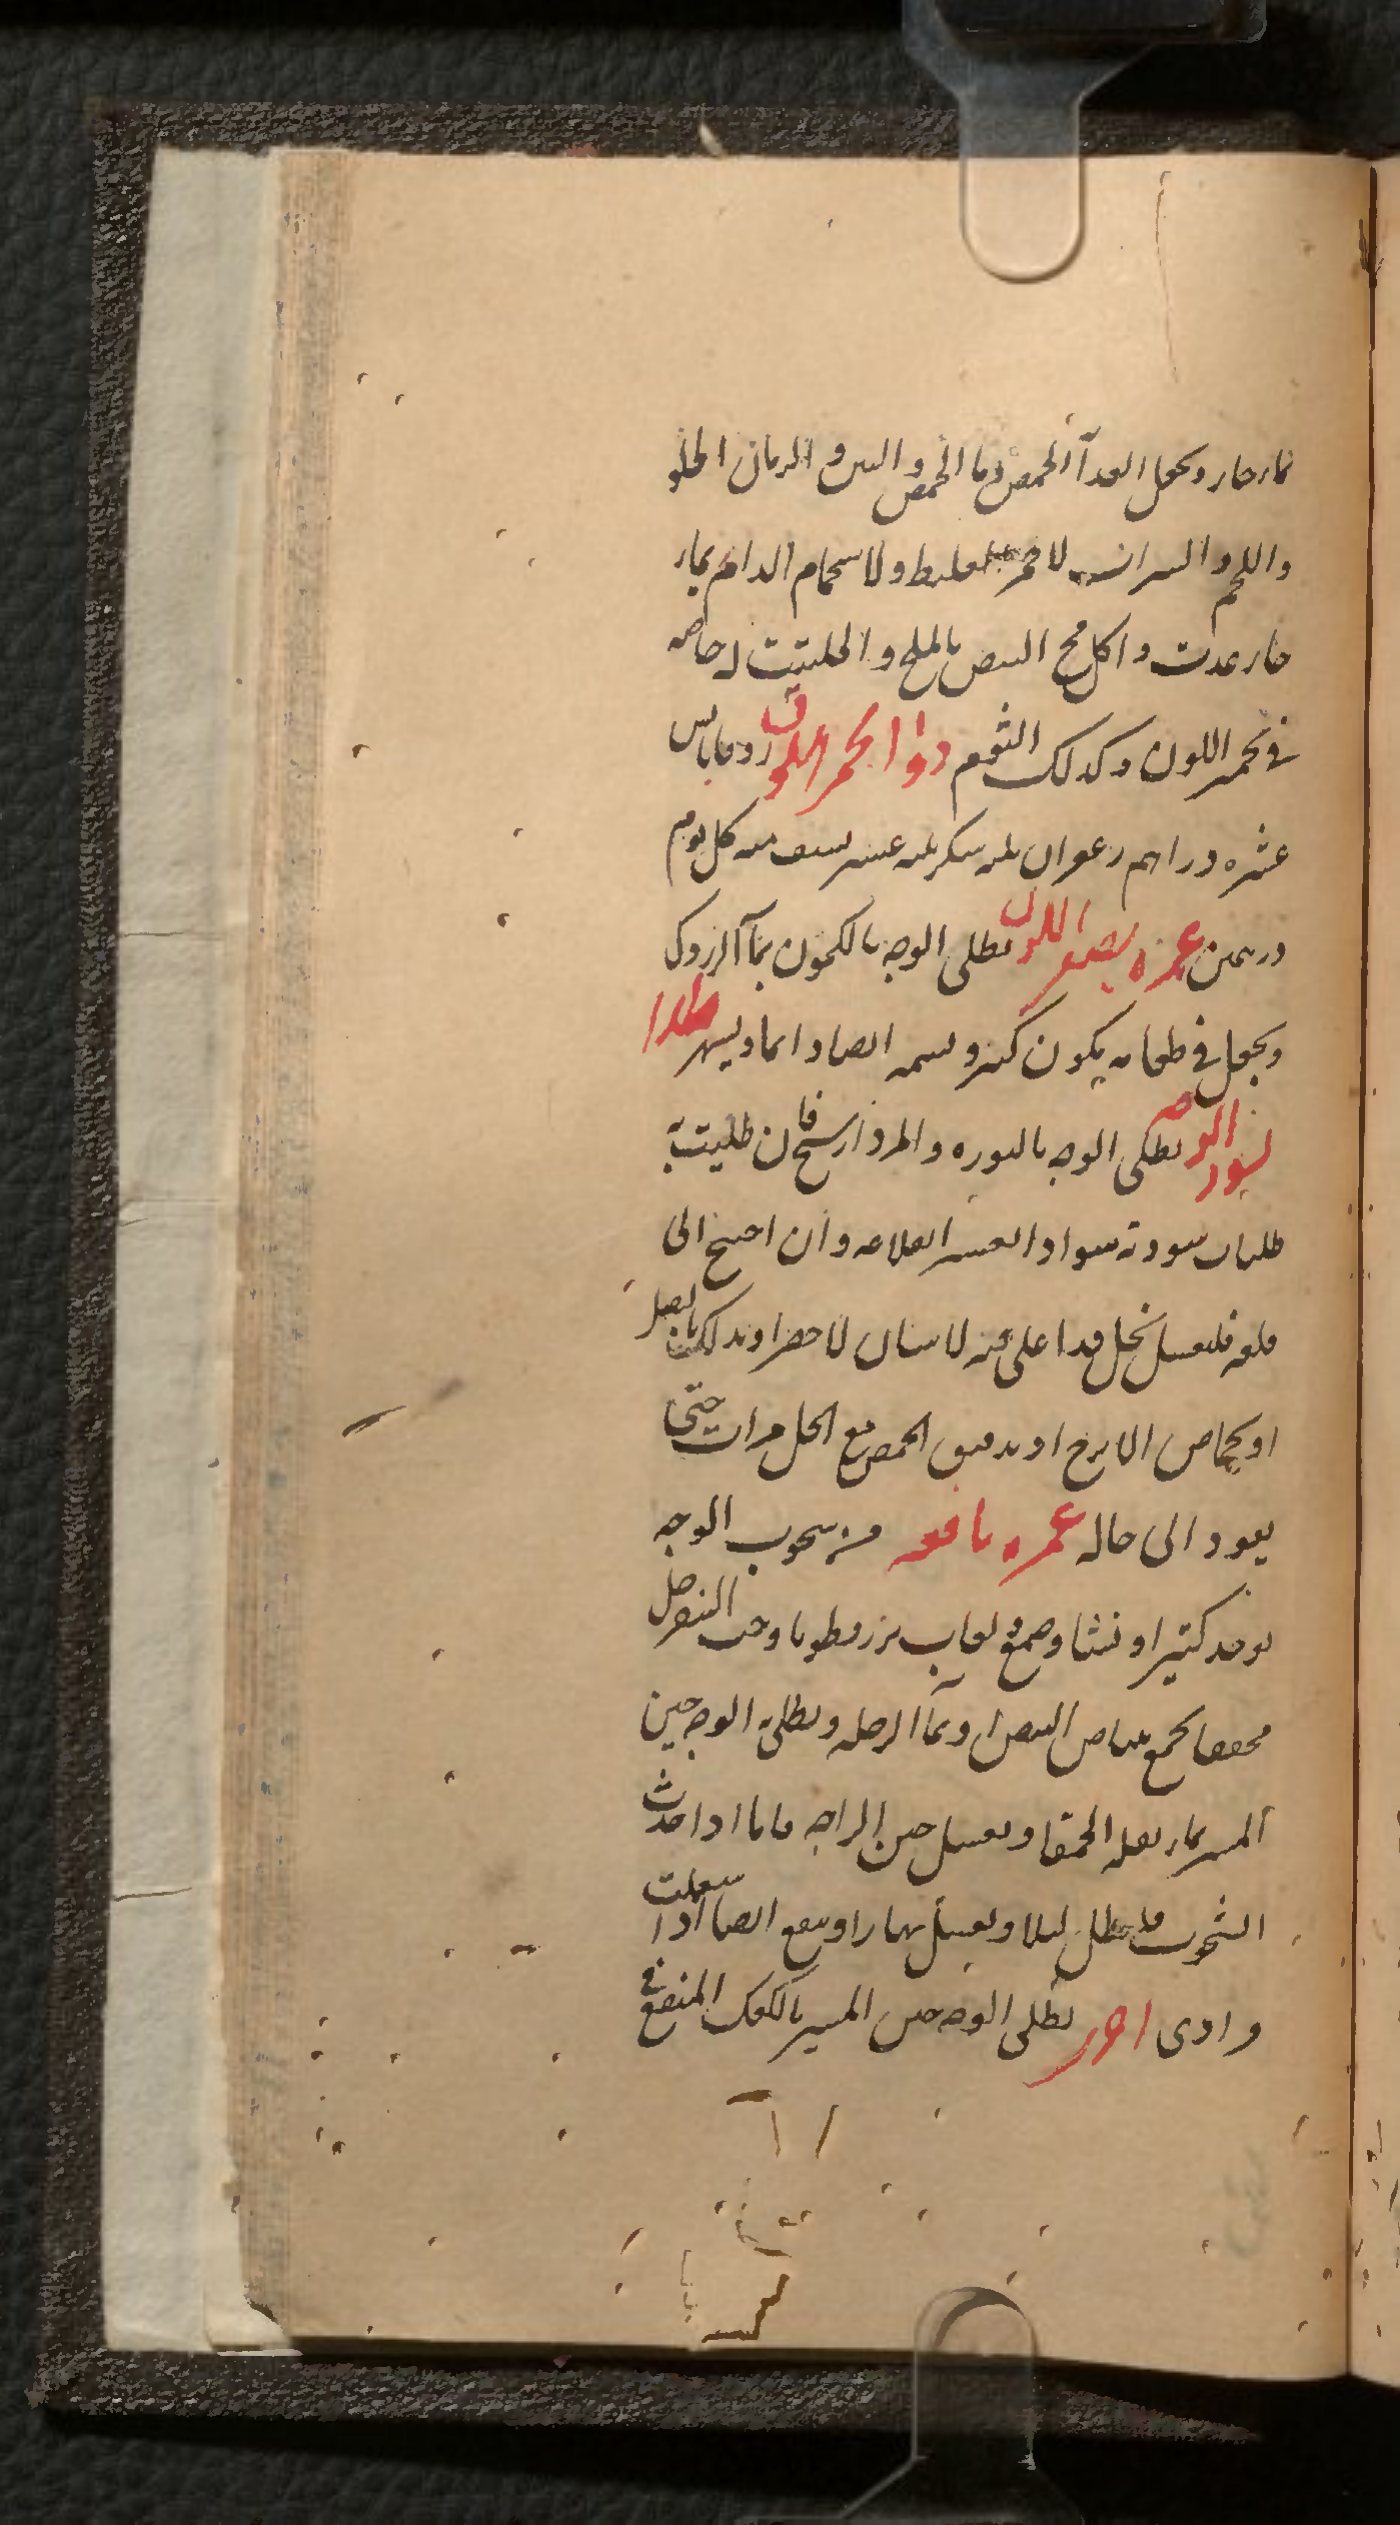 بماء حار ويجعل الغدا الحمص وما الحمص والتين والرمان الحلو
واللحم والشراب الاحمر الغليظ والاستحمام الدائم بماء
حار عذب واكل مح البيض بالملح والحلتيت له خاصه
في تحمير اللون وكذلك الثوم دوا يحمر اللون زوفا يابس
عشره دراهم زعفران سكر عشر يستف منه كل يوم
درهمين غمره يصفر اللون يطلى الوجه بالكمون بماء الزردك
ويجعل في طعامه يكون كثير ويشمه ايضا دايما ويسهر طلا
يسود الوجه يطلى الوجه بالنوره والمرداسنج فان طليت به
طليات سودته سواد العسر القلاعه وان احتيج الى
قلعه فليغسل بخل قد اغلي فيه الاشنان الاخضر او يدلك بالبصل
او بحماض الاترج او بدقيق الحمص مع الخل مرات حتى
يعود الى حاله غمره نافعه من شحوب الوجه
يوخذ كثيرا ونشا وصمغ ولعاب بزر قطونا وحب السفرجل
مجففا يجمع ببياض البيض او بماء الرجله ويطلى به الوجه حين
المسير بماء بقله الحمقا ويغسل حين الراحه فاما اذا حدث
الشحوب فليطل ليلا ويغسل نهارا وينفع ايضا اذا استعملت
وادى اخر يطلى الوجه حين المسير بالكعك المنقع في